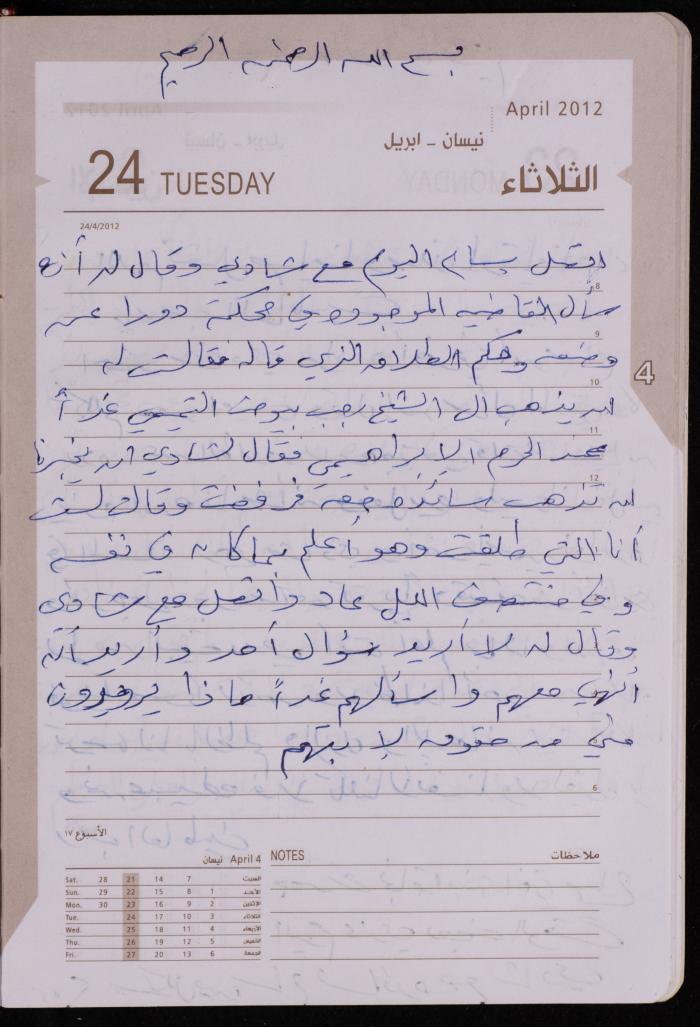 بسم الله الرحمن الرحيم
April 2012
نيسان - ابريل
24 TUESDAY
الثلاثاء
24/4/2012
اتصل بسام اليوم مع شادي وقال له أنه
8
سأل القاضي الموجود في محكمة دورا عن
9
وضعه وحكم الطلاق الذي قاله فقالت له
10
4
ان يذهب الى الشيخ رجب بيوض التميمي غداً
11
عند الحرم الإبراهيمي فقال لشادي ان يخبرنا
12
ان تذهب معه فرفضت وقال لست
أنا التي طلقت وهو أعلم بما كان في نفسه
وفي منتصف الليل عاد واتصل مع شادي
وقال له لا أريد سؤال أحد وأريد أن
أنهي معهم واسألهم غداً ماذا يريدون
مني من حقوق لإبنتهم
6
الأسبوع ١٧
April 4 نيسان
NOTES ملاحظات
Sat. 28 21 14 7 السبت
Sun. 29 22 15 8 1 الأحد
Mon. 30 23 16 9 2 الإثنين
Tue. 24 17 10 3 الثلاثاء
Wed. 25 18 11 4 الأربعاء
Thu. 26 19 12 5 الخميس
Fri. 27 20 13 6 الجمعة